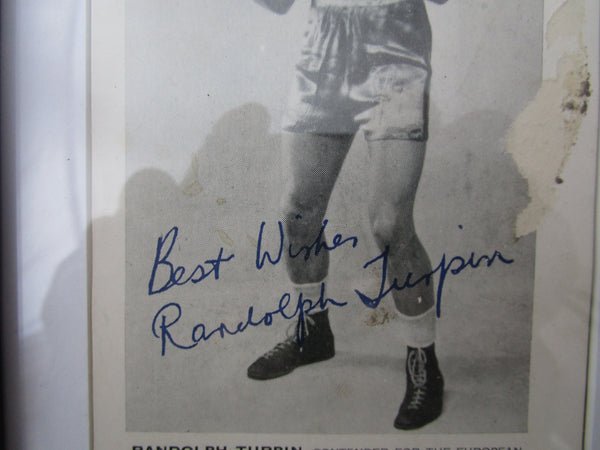 Best Wishes
Randolph Turpin
RANDOLPH TURPIN, CONTENDER FOR THE EUROPEAN